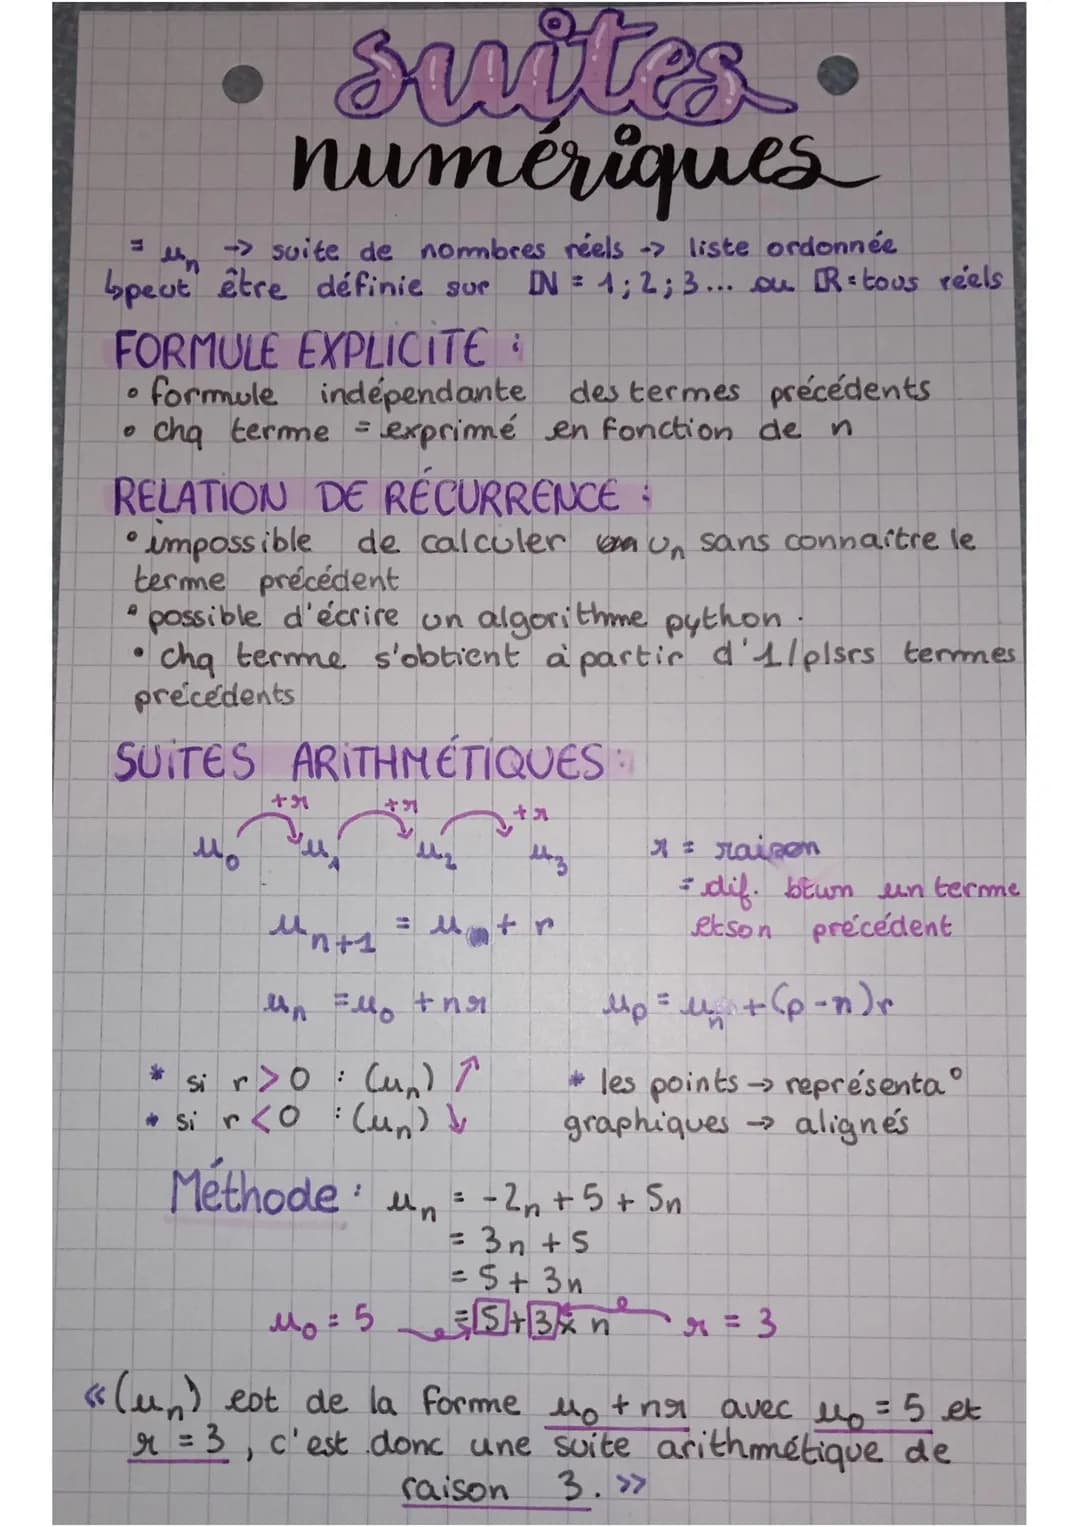 suites
numériques
= un → suite de nombres réels → liste ordonnée
↳peut être définie sur ℕ = 1; 2; 3... ou ℝ = tous réels
FORMULE EXPLICITE :
• formule indépendante des termes précédents
• chq terme = exprimé en fonction de n
RELATION DE RÉCURRENCE :
• impossible de calculer un sans connaître le
terme précédent
• possible d'écrire un algorithme python.
• chq terme s'obtient à partir d'1/plsrs termes
précédents
SUITES ARITHMÉTIQUES :
+r +r +r
u0 u1 u2 u3 r = raison
= dif. btwn un terme
et son précédent
un+1 = un + r
un = u0 + nr up = un + (p-n)r
* si r > 0 : (un) ↗
* si r < 0 : (un) ↘
* les points → représenta°
graphiques → alignés
Méthode : un = -2n + 5 + 5n
= 3n + 5
= 5 + 3n
u0 = 5 = 5 + 3 × n r = 3
«(un) est de la forme u0 + nr avec u0 = 5 et
r = 3, c'est donc une suite arithmétique de
raison 3. »